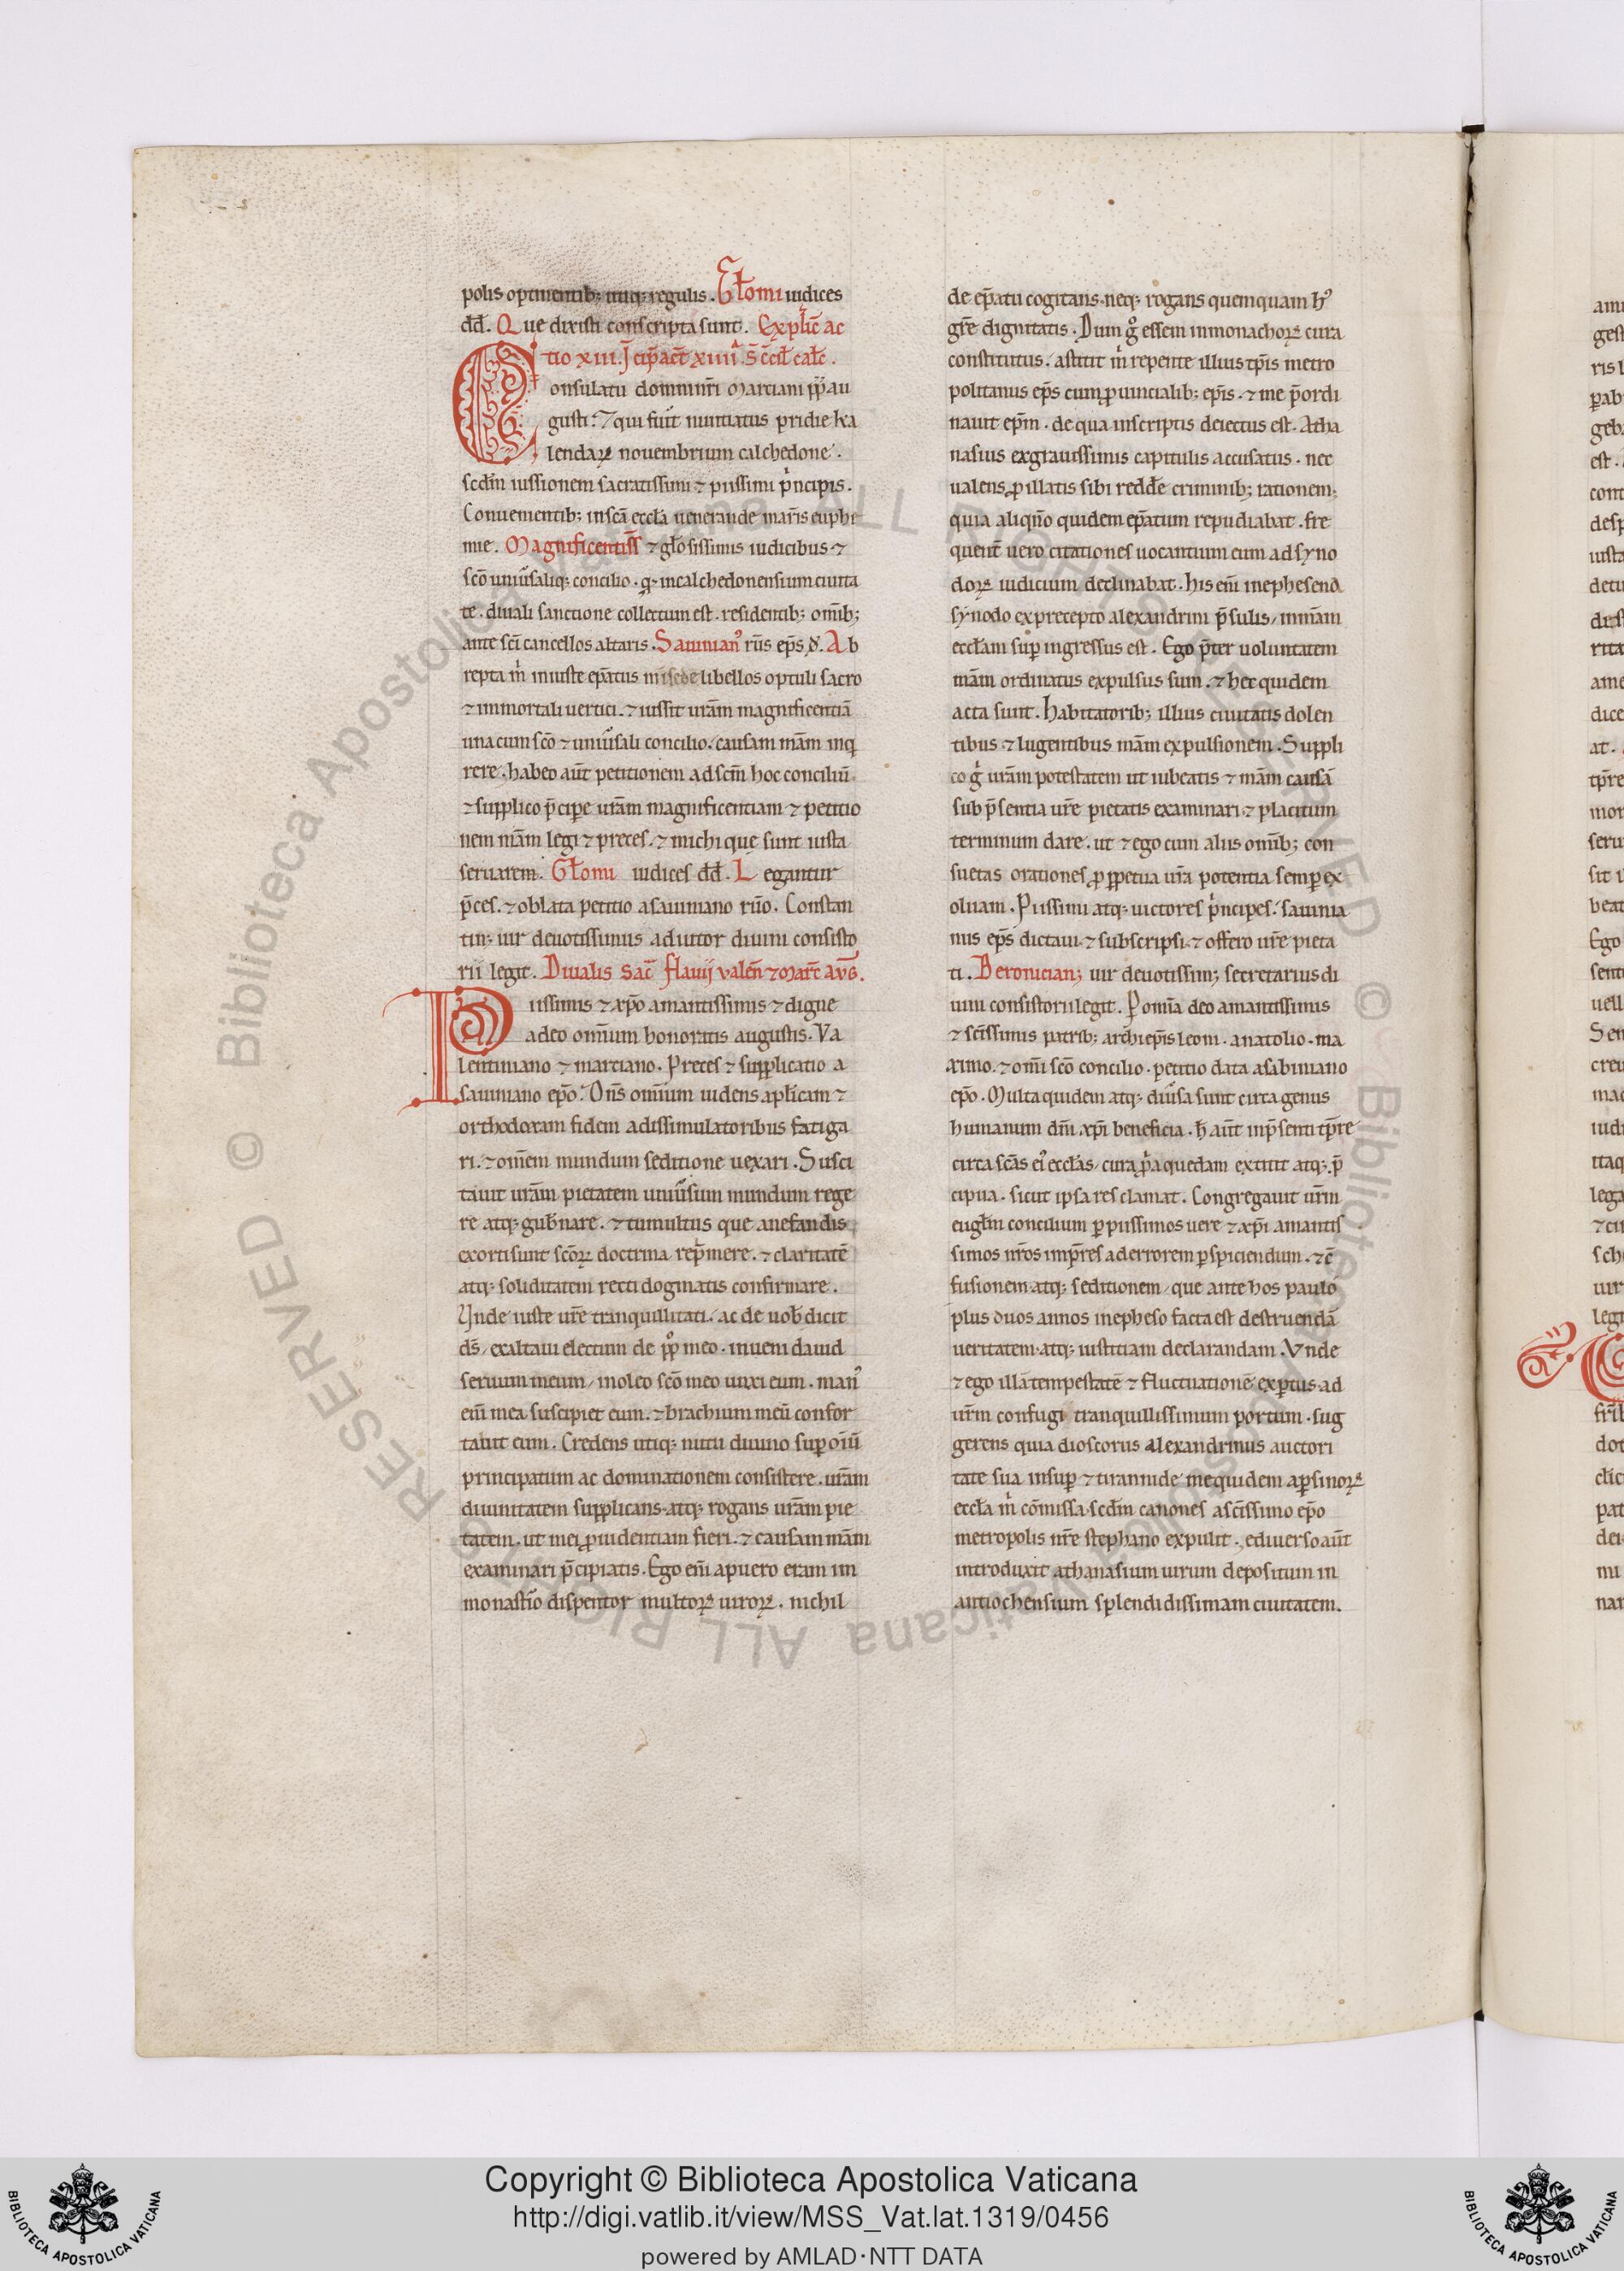 polis optinentib; utiq; regulis. Gl̃omi iudices
dd̃. Que dixisti conscripta sunt. Explic̃ ac
tio xiii. J̃cip̃ act̃ xiiii. s̃c̃i c̃cil̃ calc̃.
Consulatu domni nr̃i Marciani pp̃ au
gusti. ⁊ qui fuit nuntiatus pridie ka
lendaꝝ novembrium calchedone.
scd̃m iussionem sacratissimi ⁊ piissimi pͥncipis.
Conuenientib; in sc̃a eccl̃a uenerande mar̃is euphe
mie. Magnificentiss̃ ⁊ gl̃osissimis iudicibus ⁊
sc̃o uniũsaliq; concilio. q̃ in calchedonensium ciuita
te. diuali sanctione collectum est. residentib; om̃ib;
ante sc̃i cancellos altaris. Sauinian᾽ rũs ep̃s d̃. Ab
repta m̃ iniuste ep̃atus mͥ sede libellos optuli sacro
⁊ immortali uertici. ⁊ iussit ur̃am magnificentiã
una cum sc̃o ⁊ uniũsali concilio. causam mãm inq
rere. habeo aũt petitionem ad sc̃m hoc conciliũ
⁊ supplico p̃cipe ur̃am magnificentiam ⁊ petitio
nem mãm legi ⁊ preces. ⁊ michi que sunt iusta
seruarem. Gl̃omi iudices dd̃. Legantur
p̃ces. ⁊ oblata petitio a sauiniano rũo. Constan
tin; uir deuotissimus adiutor diuini consisto
rii legit. Diualis sac̃ flauij valeñ ⁊ marc̃ avg̃.
Piissimis ⁊ xp̃o amantissimis ⁊ digne
a deo omnium honoratis augustis. Va
lentiniano ⁊ marciano. Preces ⁊ supplicatio a
sauiniano ep̃o. Dñs omĩum uidens apl̃icam ⁊
orthodoxam fidem a dissimulatoribus fatiga
ri. ⁊ om̃em mundum seditione uexari. Susci
tauit ur̃am pietatem uniũsum mundum rege
re atq; gub̃nare. ⁊ tumultus que a nefandis
exorti sunt sc̃oꝝ doctrina rep̃mere. ⁊ claritatẽ
atq; soliditatem recti dogmatis confirmare.
Unde iuste ur̃e tranquillitati. ac de uob̃ dicit
ds̃, exaltaui electum de pp̃lo meo. inueni dauid
seruum meum, in oleo sc̃o meo unxi eum. man᾽
em̃ mea suscipiet eum. ⁊ brachium meũ confor
tauit eum. Credens utiq; nutu diuino sup̲ oĩũ
principatum ac dominationem consistere. ur̃am
diuinitatem supplicans atq; rogans ur̃am pie
tatem. ut mei ꝓuidentiam fieri. ⁊ causam mãm
examinari p̃cipiatis. Ego em̃ a puero eram in
monast̃io dispentor multoꝝ uiroꝝ. nichil
de ep̃atu cogitans. neq; rogans quemquam h᾽
gr̃e dignitatis. Dum gͦ essem in monachoꝝ cura
constitutus. astitit mͥ repente illius tp̃is metro
politanus ep̃s cum ꝓuincialib; ep̃is. ⁊ me p̃ordi
nauit ep̃m. de qua inscriptis deiectus est. Atha
nasius ex grauissimis capitulis accusatus. nec
ualens ꝓ illatis sibi redde̲ criminib; rationem;
quia aliqño quidem ep̃atum repudiabat. fre
quent̃ uero citationes uocantium eum ad syno
doꝝ iudicium declinabat. his em̃ in ephesena
synodo ex precepto alexandrini p̃sulis, in mãm
eccl̃am sup̲ ingressus est. Ego p̃ter uoluntatem
mãm ordinatus expulsus sum. ⁊ hec quidem
acta sunt. habitatorib; illius ciuitatis dolen
tibus ⁊ lugentibus mãm expulsionem. Suppli
co gͥ ur̃am potestatem ut iubeatis ⁊ mãm causã
sub p̃sentia ur̃e pietatis examinari. ⁊ placitum
terminum dare. ut ⁊ ego cum aliis om̃ib; con
suetas orationes ꝓ ꝑpetua ur̃a potentia semꝑ ex
oluam. Piissimi atq; uictores pͥncipes. sauinia
nus ep̃s dictaui ⁊ subscripsi. ⁊ offero ur̃e pieta
ti. Beronician; uir deuotissim; secretarius di
uini consistorii legit. Pom̃ia deo amantissimis
⁊ sc̃issimis patrib; archiep̃is leoni. anatolio. ma
ximo. ⁊ om̃i sc̃o concilio. petitio data a sabiniano
ep̃o. Multa quidem atq; diũsa sunt circa genus
humanum dñi xp̃i beneficia. h̃ aũt in p̃senti tp̃re
circa sc̃as ei᾽ eccl̃as, cura ꝓ̃a quedam extitit atq; p̃
cipua. sicut ipsa res clamat. Congregauit ur̃m
eugl̃m concilium ꝑ piissimos uere ⁊ xp̃i amantis
simos nr̃os imp̃res ad errorem ꝑspiciendum. ⁊ c̃
fusionem atq; seditionem, que ante hos paulo
plus duos annos in epheso facta est destruendã
ueritatem atq; iustitiam declarandam. Vnde
⁊ ego illã tempestatẽ ⁊ fluctuationẽ exꝑtus. ad
ur̃m confugi tranquillissimum portum. sug
gerens quia dioscorus alexandrinus auctori
tate sua insuꝑ ⁊ tirannide me quidem a ꝑsinoꝝ
eccl̃a mͥ cõmissa. scd̃m canones a sc̃issimo ep̃o
metropolis nr̃e stephano expulit. e diuerso aũt
introduxit athanasium uirum depositum in
antiochensium splendidissimam ciuitatem.
Copyright © Biblioteca Apostolica Vaticana
http://digi.vatlib.it/view/MSS_Vat.lat.1319/0456
powered by AMLAD·NTT DATA